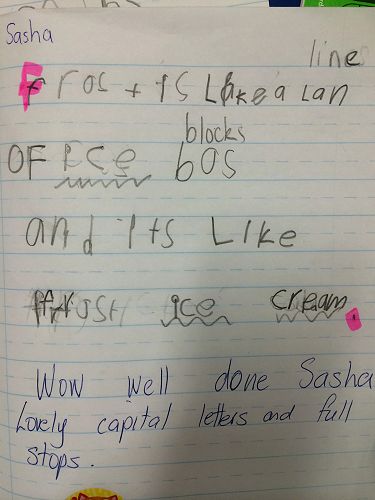 Sasha
line
Frost is Like a Lan
blocks
OF Ece bos
and its Like
frost ice cream.
Wow well done Sasha
Lovely capital letters and full
stops.